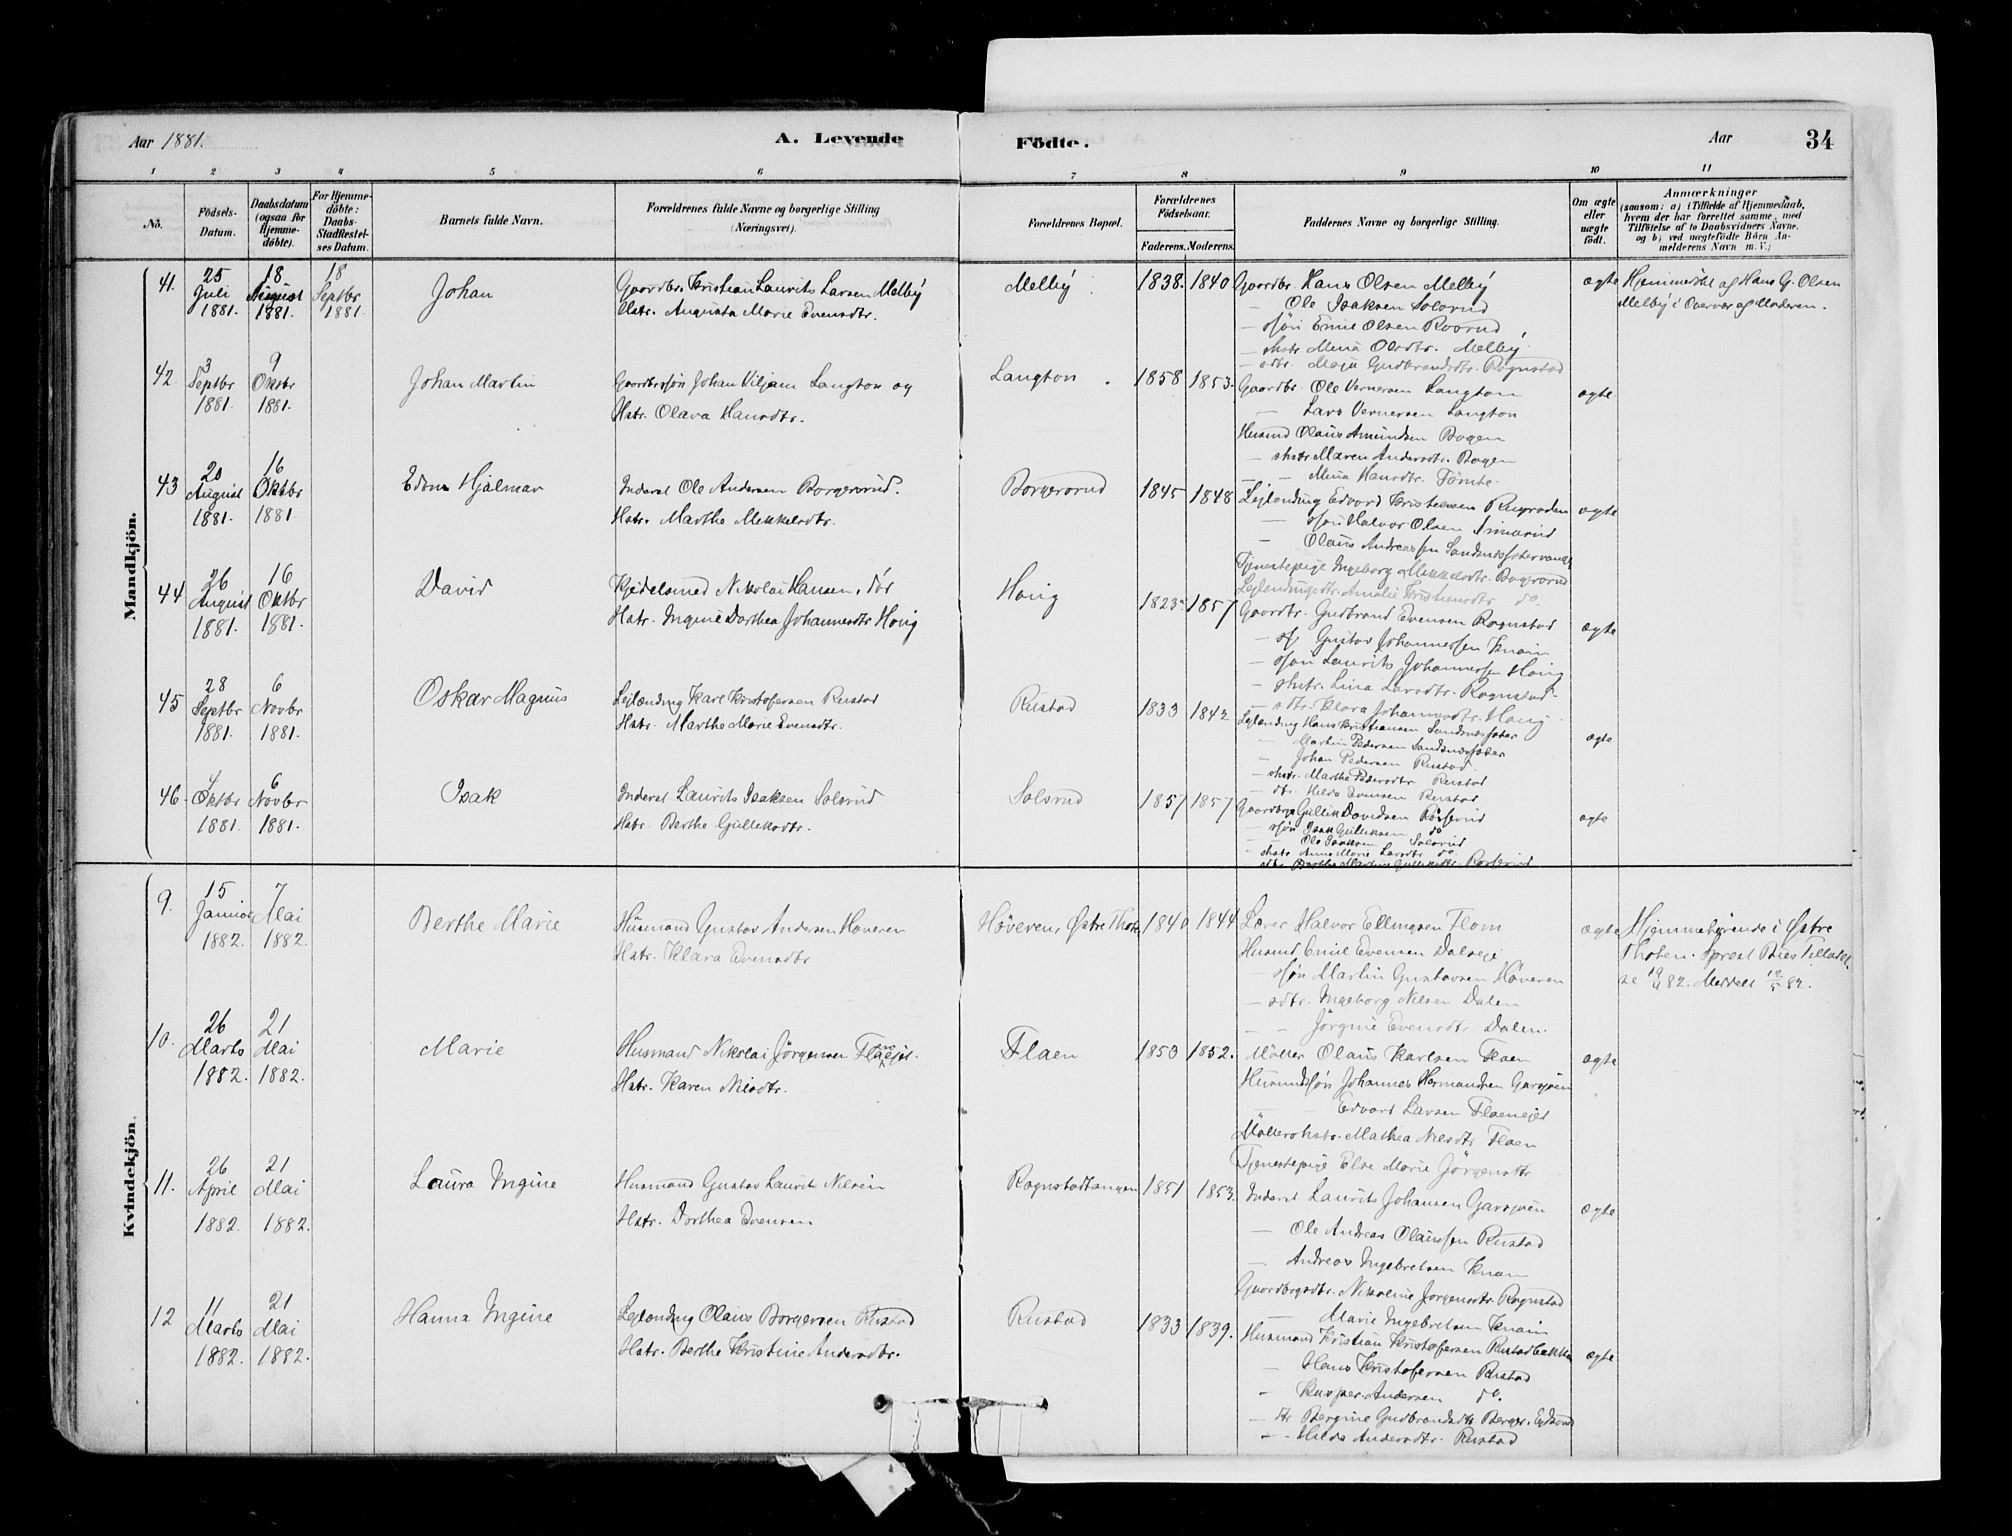 Aar 1881.
A. Levende
Födte.
Aar
34
1 2 3 4 5 6 7 8 9 10 11
No.
Födsels-Datum.
Daabsdatum (ogsaa for Hjemme-döbte).
For Hjemme-döbte: Daabs-Stadfæstel-ses Datum.
Barnets fulde Navn.
Forældrenes fulde Navne og borgerlige Stilling (Næringsvei).
Forældrenes Bopæl.
Forældrenes Födselsaar.
Faderens. Moderens.
Faddernes Navne og borgerlige Stilling.
Om ægte eller uægte födt.
Anmærkninger
(saasom: a) i Tilfælde af Hjemmedaab, hvem der har forrettet samme, med Tilföielse af to Daabsvidners Navne, og b) ved uægtefödte Börn An-melderens Navn m. V.)
Mandkjön.
41. 25 Juli 1881. 18 August 1881. 18 Septbr 1881.
Johan
Gaardbr. Kristian Laurits Larsen Melby
Hstr. Augusta Marie Evensdtr.
Melby 1838. 1840
Gaardbr. Hans Olsen Melby
— Ole Isaksen Solsrud
— søn Emil Olsen Roorud
— hstr Mina Olsdtr. Melby
— dtr. Maja Gudbrandsdtr. Rognstad
ægte
Hjemmedöbt af Hans G. Olsen
Melby i Overvær af Moderen.
42. 3 Septbr 1881. 9 Oktbr 1881.
Johan Martin
Gaardbrsøn Johan Viljam Langton og
Hstr. Olava Hansdtr.
Langton. 1858 1853.
Gaardbr. Ole Vernersen Langton
— Lars Vernersen Langton
Husmd Olaus Amundsen Bogen
— hstr Maren Andersdtr. Bogen
— Mina Hansdtr. Tömte.
ægte
43 20 August 1881. 16 Oktbr 1881.
Edvin Hjalmar
Inderst Ole Andersen Borgerorud.
Hstr. Marthe Mikkelsdtr.
Borgerorud 1845 1848
Leilænding Edvard Kristiansen Rugraden
— søn Halvor Olsen
— Olaus Andreassen
Tjenestepige Ingeborg Mikkelsdtr. Borgerorud
Leilændingsdtr. Amalie Kristiansdtr do.
ægte
44 26 August 1881. 16 Oktbr 1881.
David
Kjedelsmed Nikolai Hansen,
Hstr. Ingine Dorthea Johannesdtr Honig
Honig 1823 1857
Gaardbr. Gudbrand Evensen Rognstad
— sf. Gustav Johannessen Knain
— søn Laurits Johannessen Honig
— hstr. Lina Larsdtr. Rognstad
— dtr. Klara Johannesdtr. Honig
ægte
45 28 Septbr 1881. 6 Novbr 1881.
Oskar Magnus
Leilænding Karl Kristofersen Rustad
Hstr. Marthe Marie Evensdtr.
Rustad 1833 1842
Leilænding Hans Kristiansen Sandnessæter
— Martin Pedersen Sandnessæter
— Johan Pedersen Rustad
— hstr. Marthe Pedersdtr Rustad
— dtr. Hilda Evensen Rustad
ægte
46. 4 Oktbr 1881. 6 Novbr 1881.
Isak
Inderst Laurits Isaksen Solsrud
Hstr. Berthe Gulliksdtr.
Solsrud 1857 1857
Gaardbr Gullik Davidsen
— søn Isak Gulliksen do
— Ole Isaksen Solsrud
— hstr Anne Marie Larsdtr do.
ægte
Kvindekjön.
9. 15 Januar 1882. 7 Mai 1882.
Berthe Marie
Husmand Gustav Andersen Høveren
Hstr. Klara Evensdtr
Höveren, Østre Thoten 1840 1844
Lærer Halvor Ellingsen Flom
Husmd Emil Evensen Dalseje
— søn Martin Gustavsen Höveren
— dtr. Ingeborg Nilsen Dalen
— Jörgine Evensdtr. Dalen.
ægte
Hjemmehörende i Østre
Thoten. Sprest Bies Tilladel-
se 19/4 82. Meddelt 19/5 82.
10. 26 Marts 1882. 21 Mai 1882.
Marie
Husmand Nikolai Jörgensen Flaenejet.
Hstr. Karen Nilsdtr.
Flaen 1850 1852.
Möller Olaus Karlsen Flaen
Husmdssøn Johannes Hermandsen Garsjøen
— Edvart Larsen Flaenejet
Möllershstr. Mathea Nilsdtr Flaen
Tjenestepige Else Marie Jörgensdtr
ægte
11. 26 April 1882. 21 Mai 1882.
Laura Ingine
Husmand Gustav Laurits Nilsen
Hstr. Dorthea Evensen
Rognstadtangen 1851 1853.
Inderst Laurits Johansen Garsjøen
— Ole Andreas Olaussen Rustad
— Andreas Ingebretsen Knain
Gaardbrgsdtr. Nikoline Jorgensdtr. Rognstad
— Marie Ingebretsen Knain
ægte
12 11 Marts 1882. 21 Mai 1882.
Hanna Ingine
Leilænding Olaus Borgersen Rustad
Hstr. Berthe Kristine Andersdtr.
Rustad 1833 1839.
Husmand Kristian Kristofersen Rustadbakken
— Hans Kristofersen Rustad
— Kasper Andersen do.
— dtr Bergine Gudbrandsdtr
— Hilda Andersdtr. Rustad
ægte